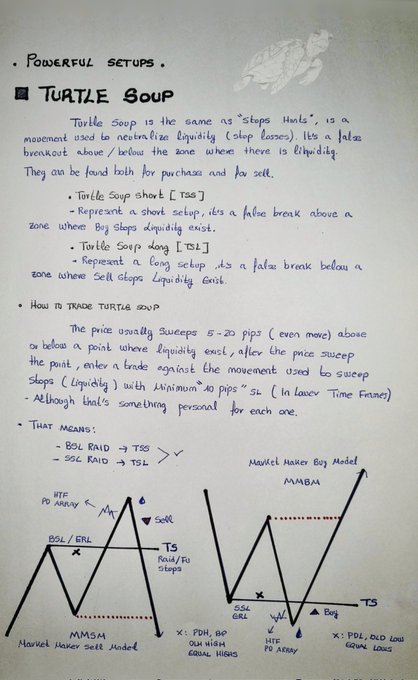 • POWERFUL SETUPS.
TURTLE SOUP
Turtle Soup is the same as "Stops Hunts", is a
movement used to neutralize liquidity (stop losses). It's a false
breakout above / below the zone where there is liquidity.
They can be found both for purchase and for sell.
• Turtle Soup short [TSS]
- Represent a short setup, it's a false break above a
zone where Buy Stops Liquidity exist.
• Turtle Soup Long [TSL]
- Represent a long setup, it's a false break below a
zone where Sell Stops Liquidity Exist.
• HOW TO TRADE TURTLE SOUP
The price usually Sweeps 5-20 pips (even more) above
or below a point where liquidity exist, after the price sweep
the point, enter a trade against the movement used to sweep
Stops (Liquidity) with Minimum "10 pips" SL (In Lower Time Frames)
- Although that's something personal for each one.
• THAT MEANS:
- BSL RAID → TSS
- SSL RAID → TSL
Market Maker Buy Model
MMBM
HTF
PD ARRAY
Sell
BSL / ERL
TS
Raid/Fu
Stops
x
MMSM
Market Maker Sell Model
x: PDH, BP
OLD HIGH
EQUAL HIGHS
SSL
ERL
x
TS
Buy
HTF
PD ARRAY
x: PDL, OLD LOW
EQUAL LOWS